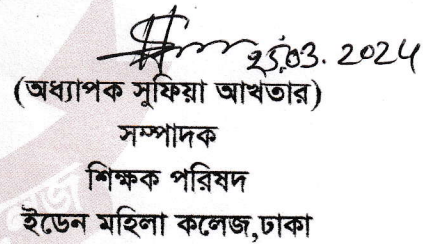 25.03.2024
(অধ্যাপক সুফিয়া আখতার)
সম্পাদক
শিক্ষক পরিষদ
ইডেন মহিলা কলেজ,ঢাকা